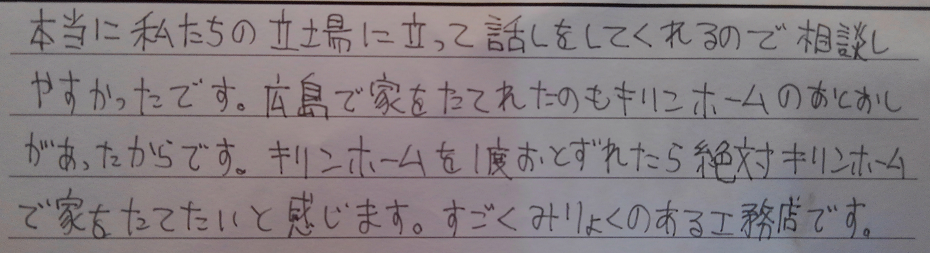 本当に私たちの立場に立って話しをしてくれるので相談し
やすかったです。広島で家をたてれたのもキリンホームのあとおし
があったからです。キリンホームを1度おとずれたら絶対キリンホーム
で家をたてたいと感じます。すごくみりょくのある工務店です。